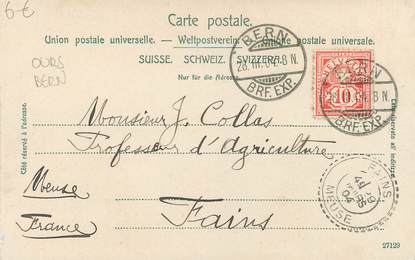 6-€
OURS
BERN
Carte postale.
Union postale universelle. — Weltpostverein. — Unione postale universale.
SUISSE. SCHWEIZ. SVIZZERA.
Nur für die Adresse.
Côté réservé à l'adresse.
BERN
28.III.04.-8 N.
BRF. EXP.
HELVETIA
10
BERN
28.III.04.-8 N.
BRF. EXP.
Monsieur J. Collas
Professeur d'Agriculture
Meuse
France
Fains
FAINS
MEUSE
04
27129